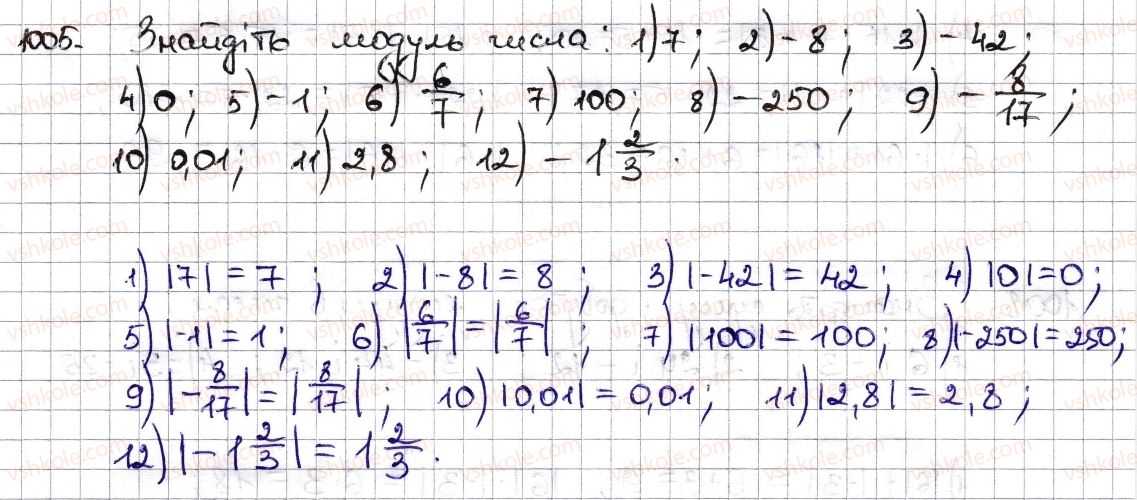 1005. Знайдіть модуль числа: 1) 7; 2) - 8; 3) - 42;
4) 0; 5) - 1; 6) 6/7; 7) 100; 8) - 250; 9) - 8/17;
10) 0,01; 11) 2,8; 12) - 1 2/3.
1) |7| = 7; 2) |-8| = 8; 3) |-42| = 42; 4) |0| = 0;
5) |-1| = 1; 6) |6/7| = |6/7|; 7) |100| = 100; 8) |-250| = 250;
9) |-8/17| = |8/17|; 10) |0,01| = 0,01; 11) |2,8| = 2,8;
12) |-1 2/3| = 1 2/3.